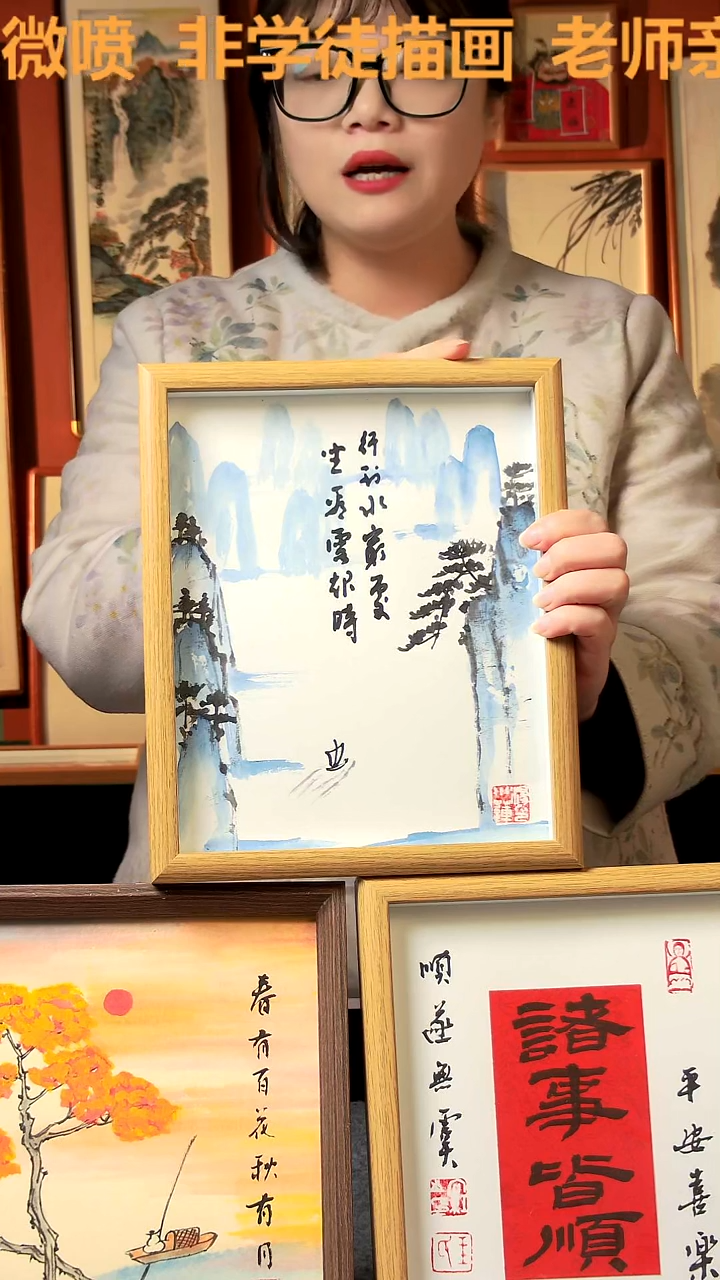 微喷 非学徒描画 老师亲
行到水窮處
坐看雲起時
春有百花秋有月
順遂無虞
諸事皆順
平安喜樂